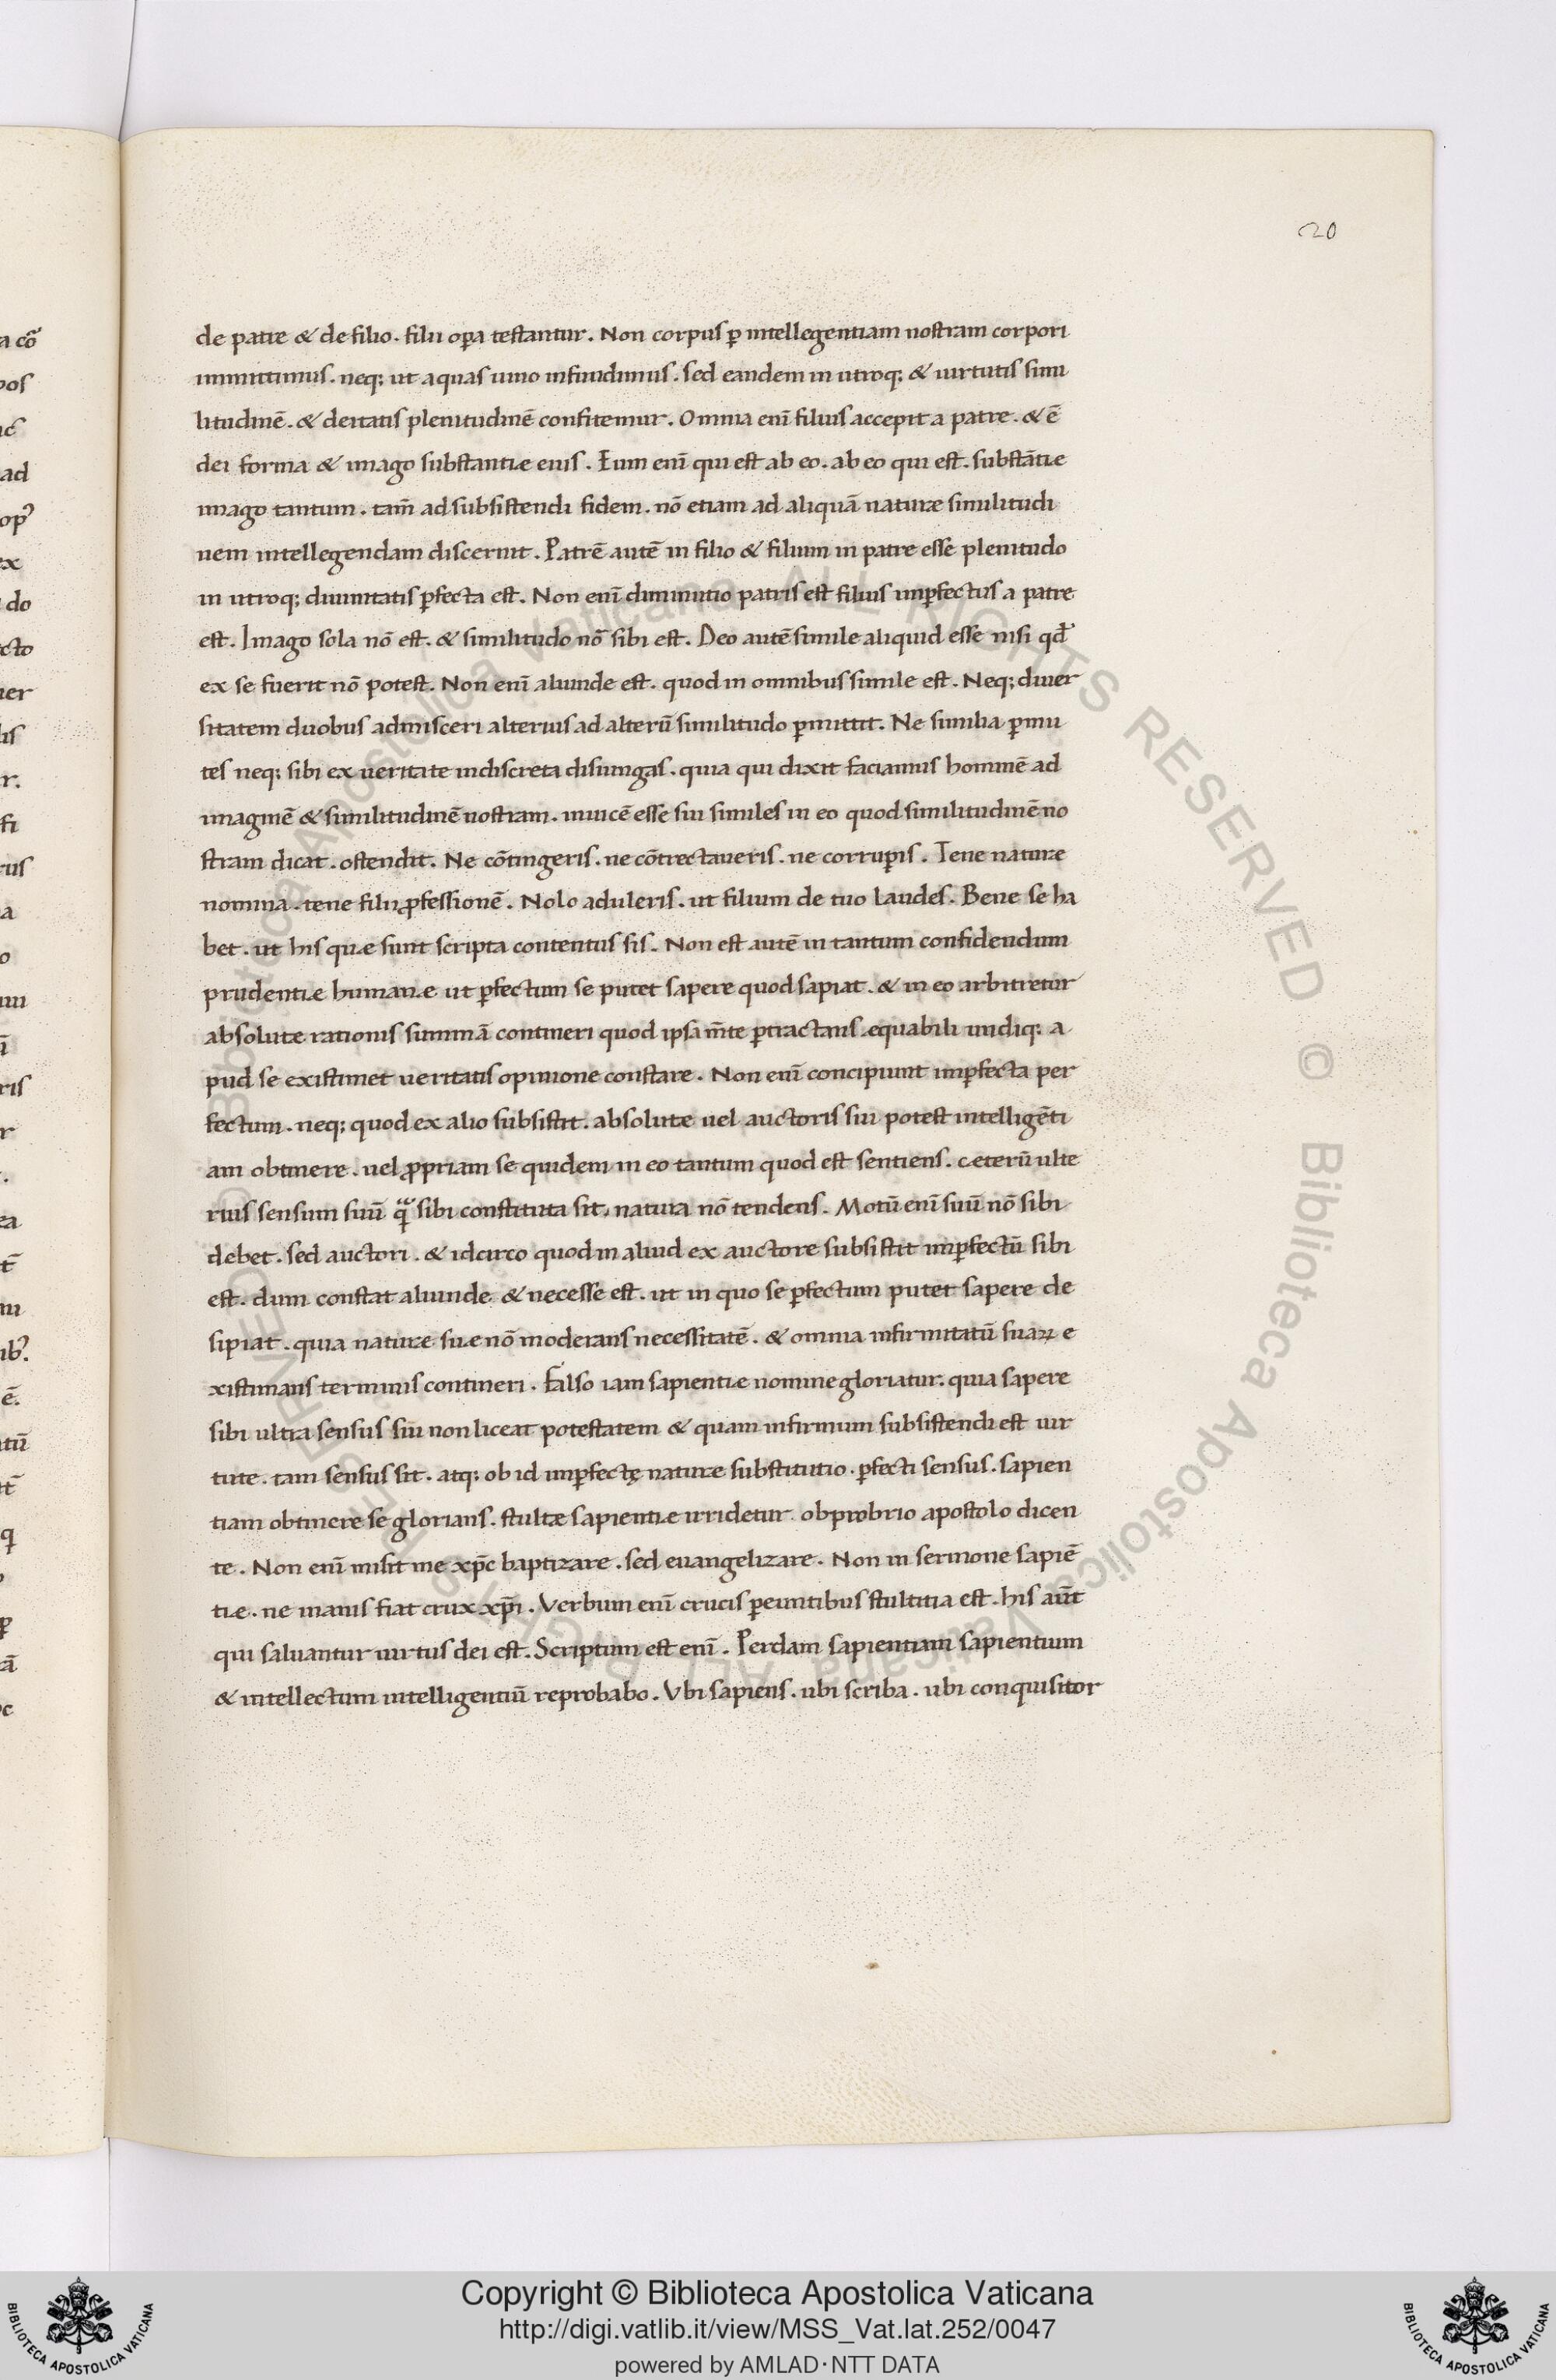 20
de patre & de filio. filii opa testantur. Non corpus p intellegentiam nostram corpori
inmittimus. neq; ut aquas uino infundimus. sed eandem in utroq; & uirtutis simi
litudinē. & deitatis plenitudinē confitemur. Omnia enī filius accepit a patre. & ē
dei forma & imago substantiæ eius. Eum enī qui est ab eo. ab eo qui est. substātiæ
imago tantum. tam̄ ad subsistendi fidem. nō etiam ad aliquā naturæ similitudi
nem intellegendam discernit. Patrē autē in filio & filium in patre esse plenitudo
in utroq; diuinitatis pfecta est. Non enī diminutio patris est filius inpfectus a patre
est. Imago sola nō est. & similitudo nō sibi est. Deo autē simile aliquid esse nisi qd̄
ex se fuerit nō potest. Non enī aliunde est. quod in omnibus simile est. Neq; diuer
sitatem duobus admisceri alterius ad alterū similitudo pmittit. Ne similia pmu
tes neq; sibi ex ueritate indiscreta disiungas. quia qui dixit faciamus hominē ad
imaginē & similitudinē nostram. inuicē esse sui similes in eo quod similitudinē no
stram dicat. ostendit. Ne cōtingeris. ne cōtrectaueris. ne corrupis. Tene naturæ
nomina. tene filii pfessionē. Nolo aduleris. ut filium de tuo laudes. Bene se ha
bet. ut his quæ sunt scripta contentus sis. Non est autē in tantum confidendum
prudentiæ humanæ ut pfectum se putet sapere quod sapiat. & in eo arbitretur
absolutæ rationis summā contineri quod ipsa m̄te ptractans. equabili undiq; a
pud se existimet ueritatis opinione constare. Non enī concipiunt inpfecta per
fectum. neq; quod ex alio subsistit. absolutæ uel auctoris sui potest intelligēti
am obtinere. uel ppriam se quidem in eo tantum quod est sentiens. ceterū ulte
rius sensum suū qᵃ sibi constituta sit. natura nō tendens. Motū enī suū nō sibi
debet. sed auctori. & idcirco quod in aliud ex auctore subsistit inpfectū sibi
est. dum constat aliunde & necesse est. ut in quo se pfectum putet sapere de
sipiat. quia naturæ suæ nō moderans necessitatē. & omnia infirmitatū suaꝝ e
xistimans terminis contineri. Falso iam sapientiæ nomine gloriatur. quia sapere
sibi ultra sensus sui non liceat potestatem & quam infirmum subsistendi est uir
tute. tam sensus sit. atq; ob id inpfectę naturæ substitutio. pfecti sensus. sapien
tiam obtinere se glorians. stultæ sapientiæ irridetur obprobrio apostolo dicen
te. Non enī misit me xp̄c baptizare. sed euangelizare. Non in sermone sapiē
tiæ. ne inanis fiat crux xp̄i. Verbum enī crucis peuntibus stultitia est. his aūt
qui saluantur uirtus dei est. Scriptum est enī. Perdam sapientiam sapientium
& intellectum intelligentiū reprobabo. Vbi sapiens. ubi scriba. ubi conquisitor
Copyright © Biblioteca Apostolica Vaticana
http://digi.vatlib.it/view/MSS_Vat.lat.252/0047
powered by AMLAD·NTT DATA
BIBLIOTECA APOSTOLICA VATICANA
BIBLIOTECA APOSTOLICA VATICANA